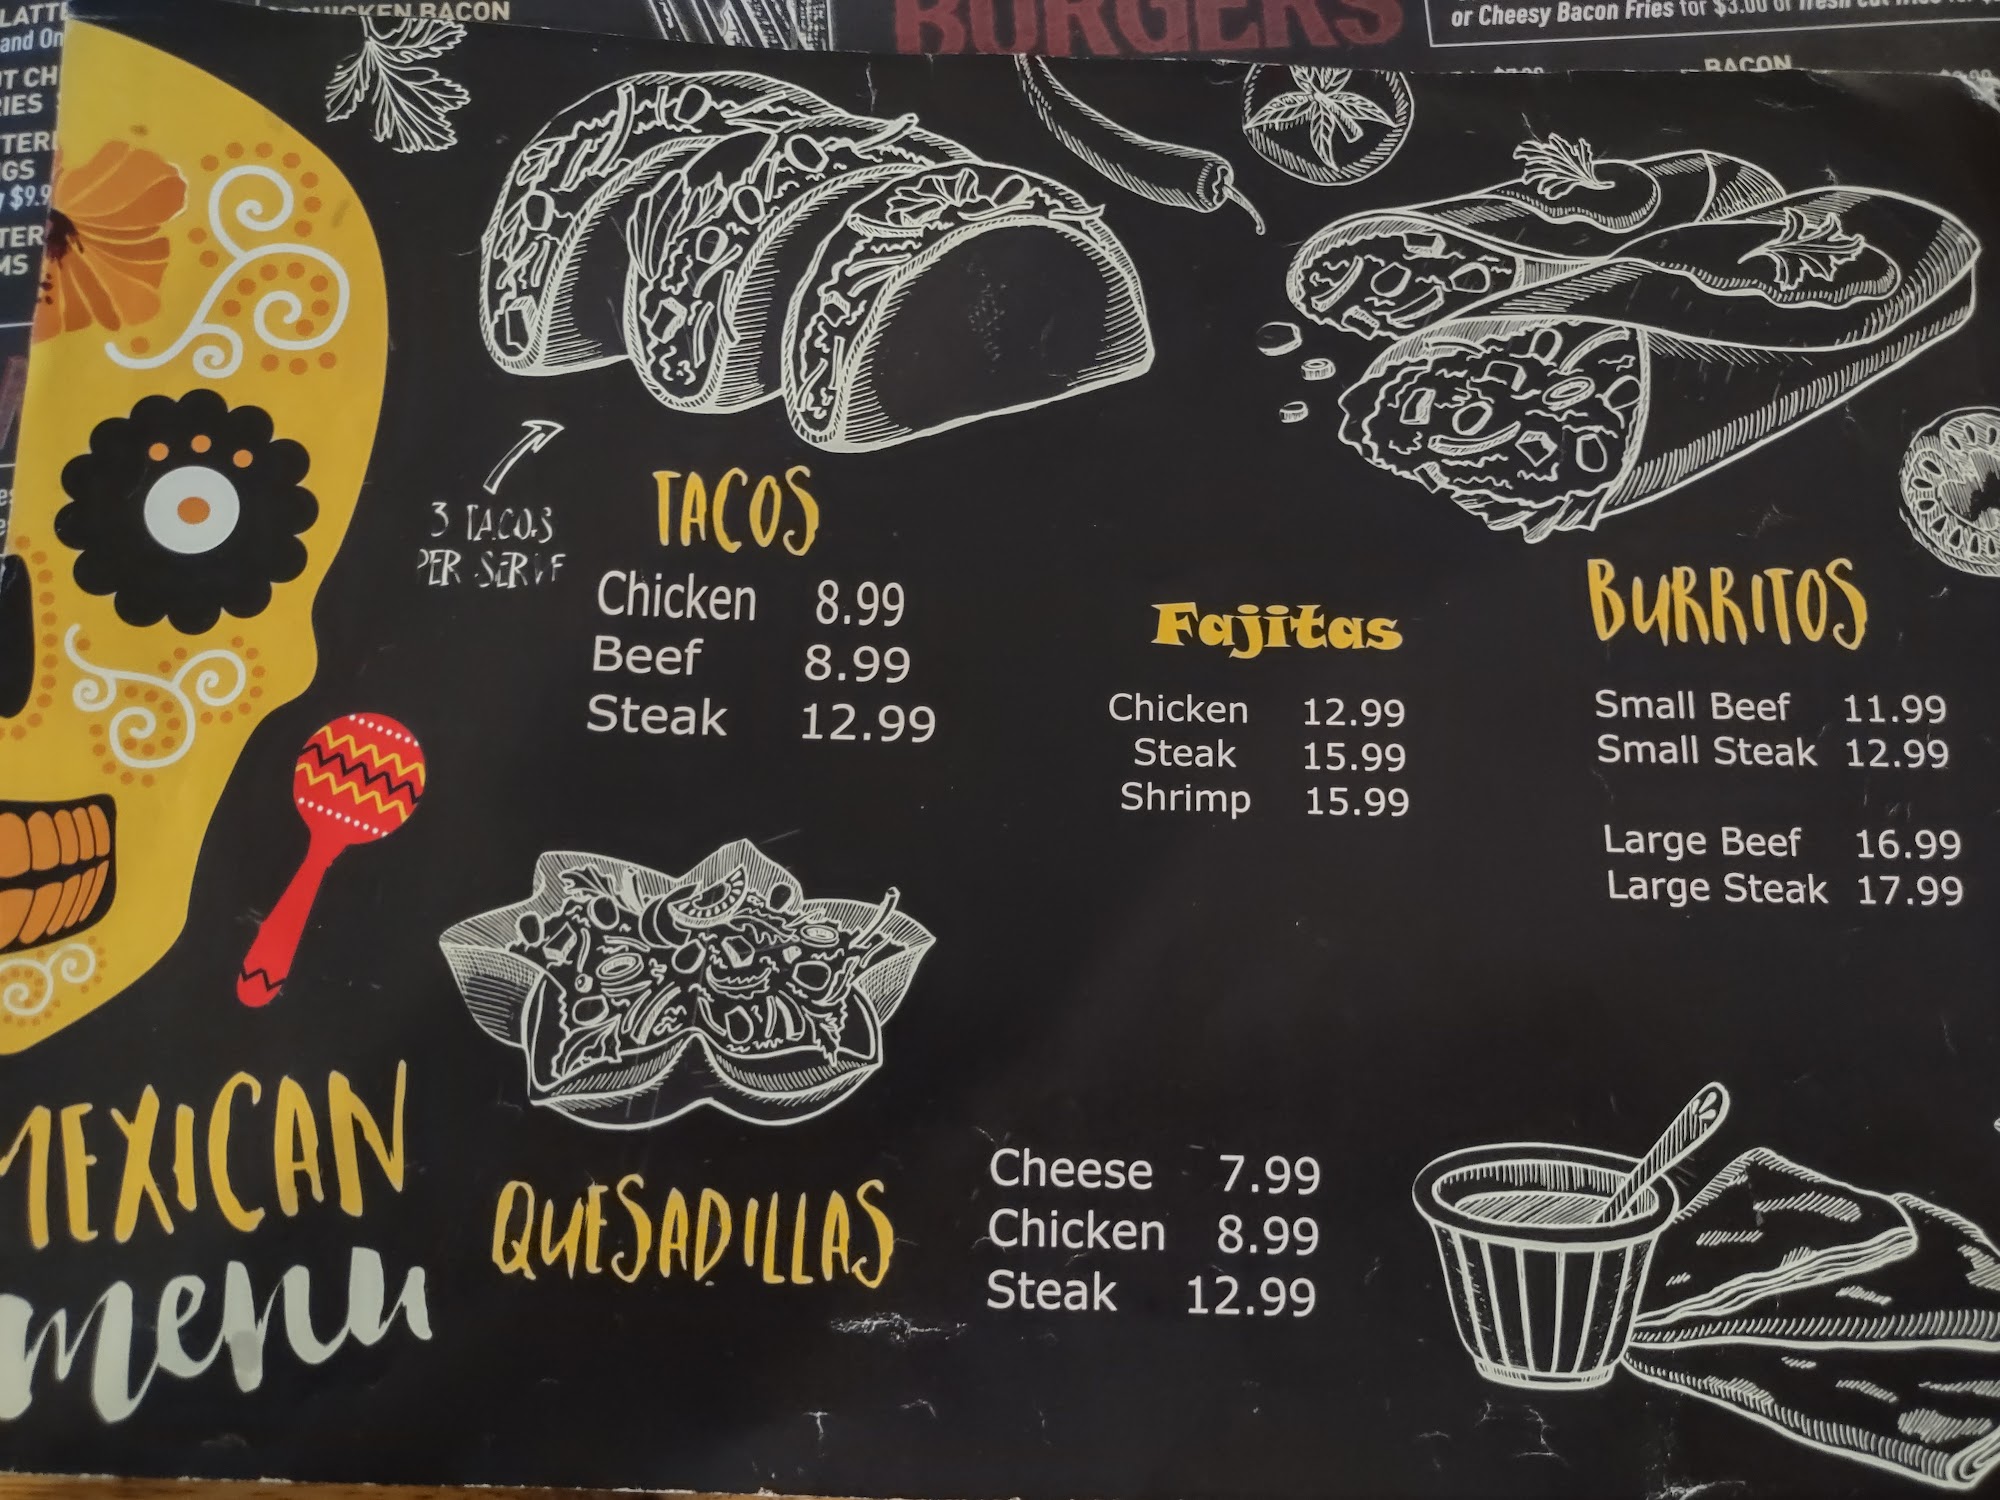 LATTE
and On
CHICKEN BACON
BURGERS
or Cheesy Bacon Fries for $3.00 or fresh cut fries for
BACON
3 TACOS
PER SERVE
TACOS
Chicken 8.99
Beef 8.99
Steak 12.99
Fajitas
Chicken 12.99
Steak 15.99
Shrimp 15.99
BURRITOS
Small Beef 11.99
Small Steak 12.99
Large Beef 16.99
Large Steak 17.99
MEXICAN
menu
QUESADILLAS
Cheese 7.99
Chicken 8.99
Steak 12.99